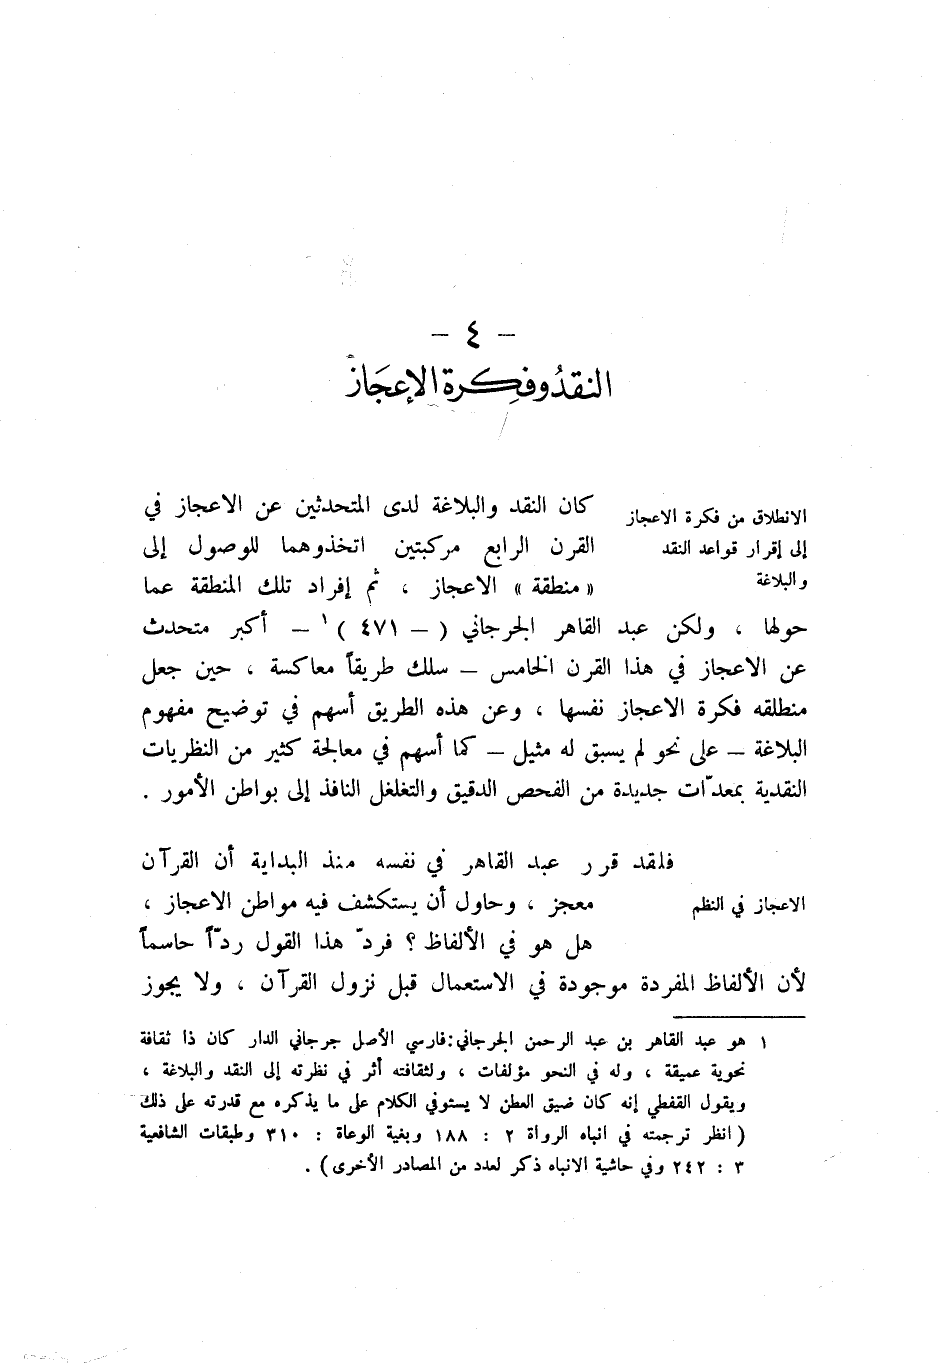 - ٤ -
النقدُ وفِكرة الإعجَاز
الانطلاق من فكرة الاعجاز
إلى إقرار قواعد النقد
والبلاغة
كان النقد والبلاغة لدى المتحدثين عن الاعجاز في
القرن الرابع مركبتين اتخذوهما للوصول إلى
« منطقة » الاعجاز ، ثم إفراد تلك المنطقة عما
حولها ، ولكن عبد القاهر الجرجاني ( – ٤٧١ )١ – أكبر متحدث
عن الاعجاز في هذا القرن الخامس – سلك طريقاً معاكسة ، حين جعل
منطلقه فكرة الاعجاز نفسها ، وعن هذه الطريق أسهم في توضيح مفهوم
البلاغة – على نحو لم يسبق له مثيل – كما أسهم في معالجة كثير من النظريات
النقدية بمعدّات جديدة من الفحص الدقيق والتغلغل النافذ إلى بواطن الأمور .
فلقد قرر عبد القاهر في نفسه منذ البداية أن القرآن
الاعجاز في النظم
معجز ، وحاول أن يستكشف فيه مواطن الاعجاز ،
هل هو في الألفاظ ؟ فردّ هذا القول ردّاً حاسماً
لأن الألفاظ المفردة موجودة في الاستعمال قبل نزول القرآن ، ولا يجوز
١ هو عبد القاهر بن عبد الرحمن الجرجاني:فارسي الأصل جرجاني الدار كان ذا ثقافة
نحوية عميقة ، وله في النحو مؤلفات ، ولثقافته أثر في نظرته إلى النقد والبلاغة ،
ويقول القفطي إنه كان ضيق العطن لا يستوفي الكلام على ما يذكره مع قدرته على ذلك
( انظر ترجمته في انباه الرواة ٢ : ١٨٨ وبغية الوعاة : ٣١٠ وطبقات الشافعية
٣ : ٢٤٢ وفي حاشية الانباه ذكر لعدد من المصادر الأخرى ) .